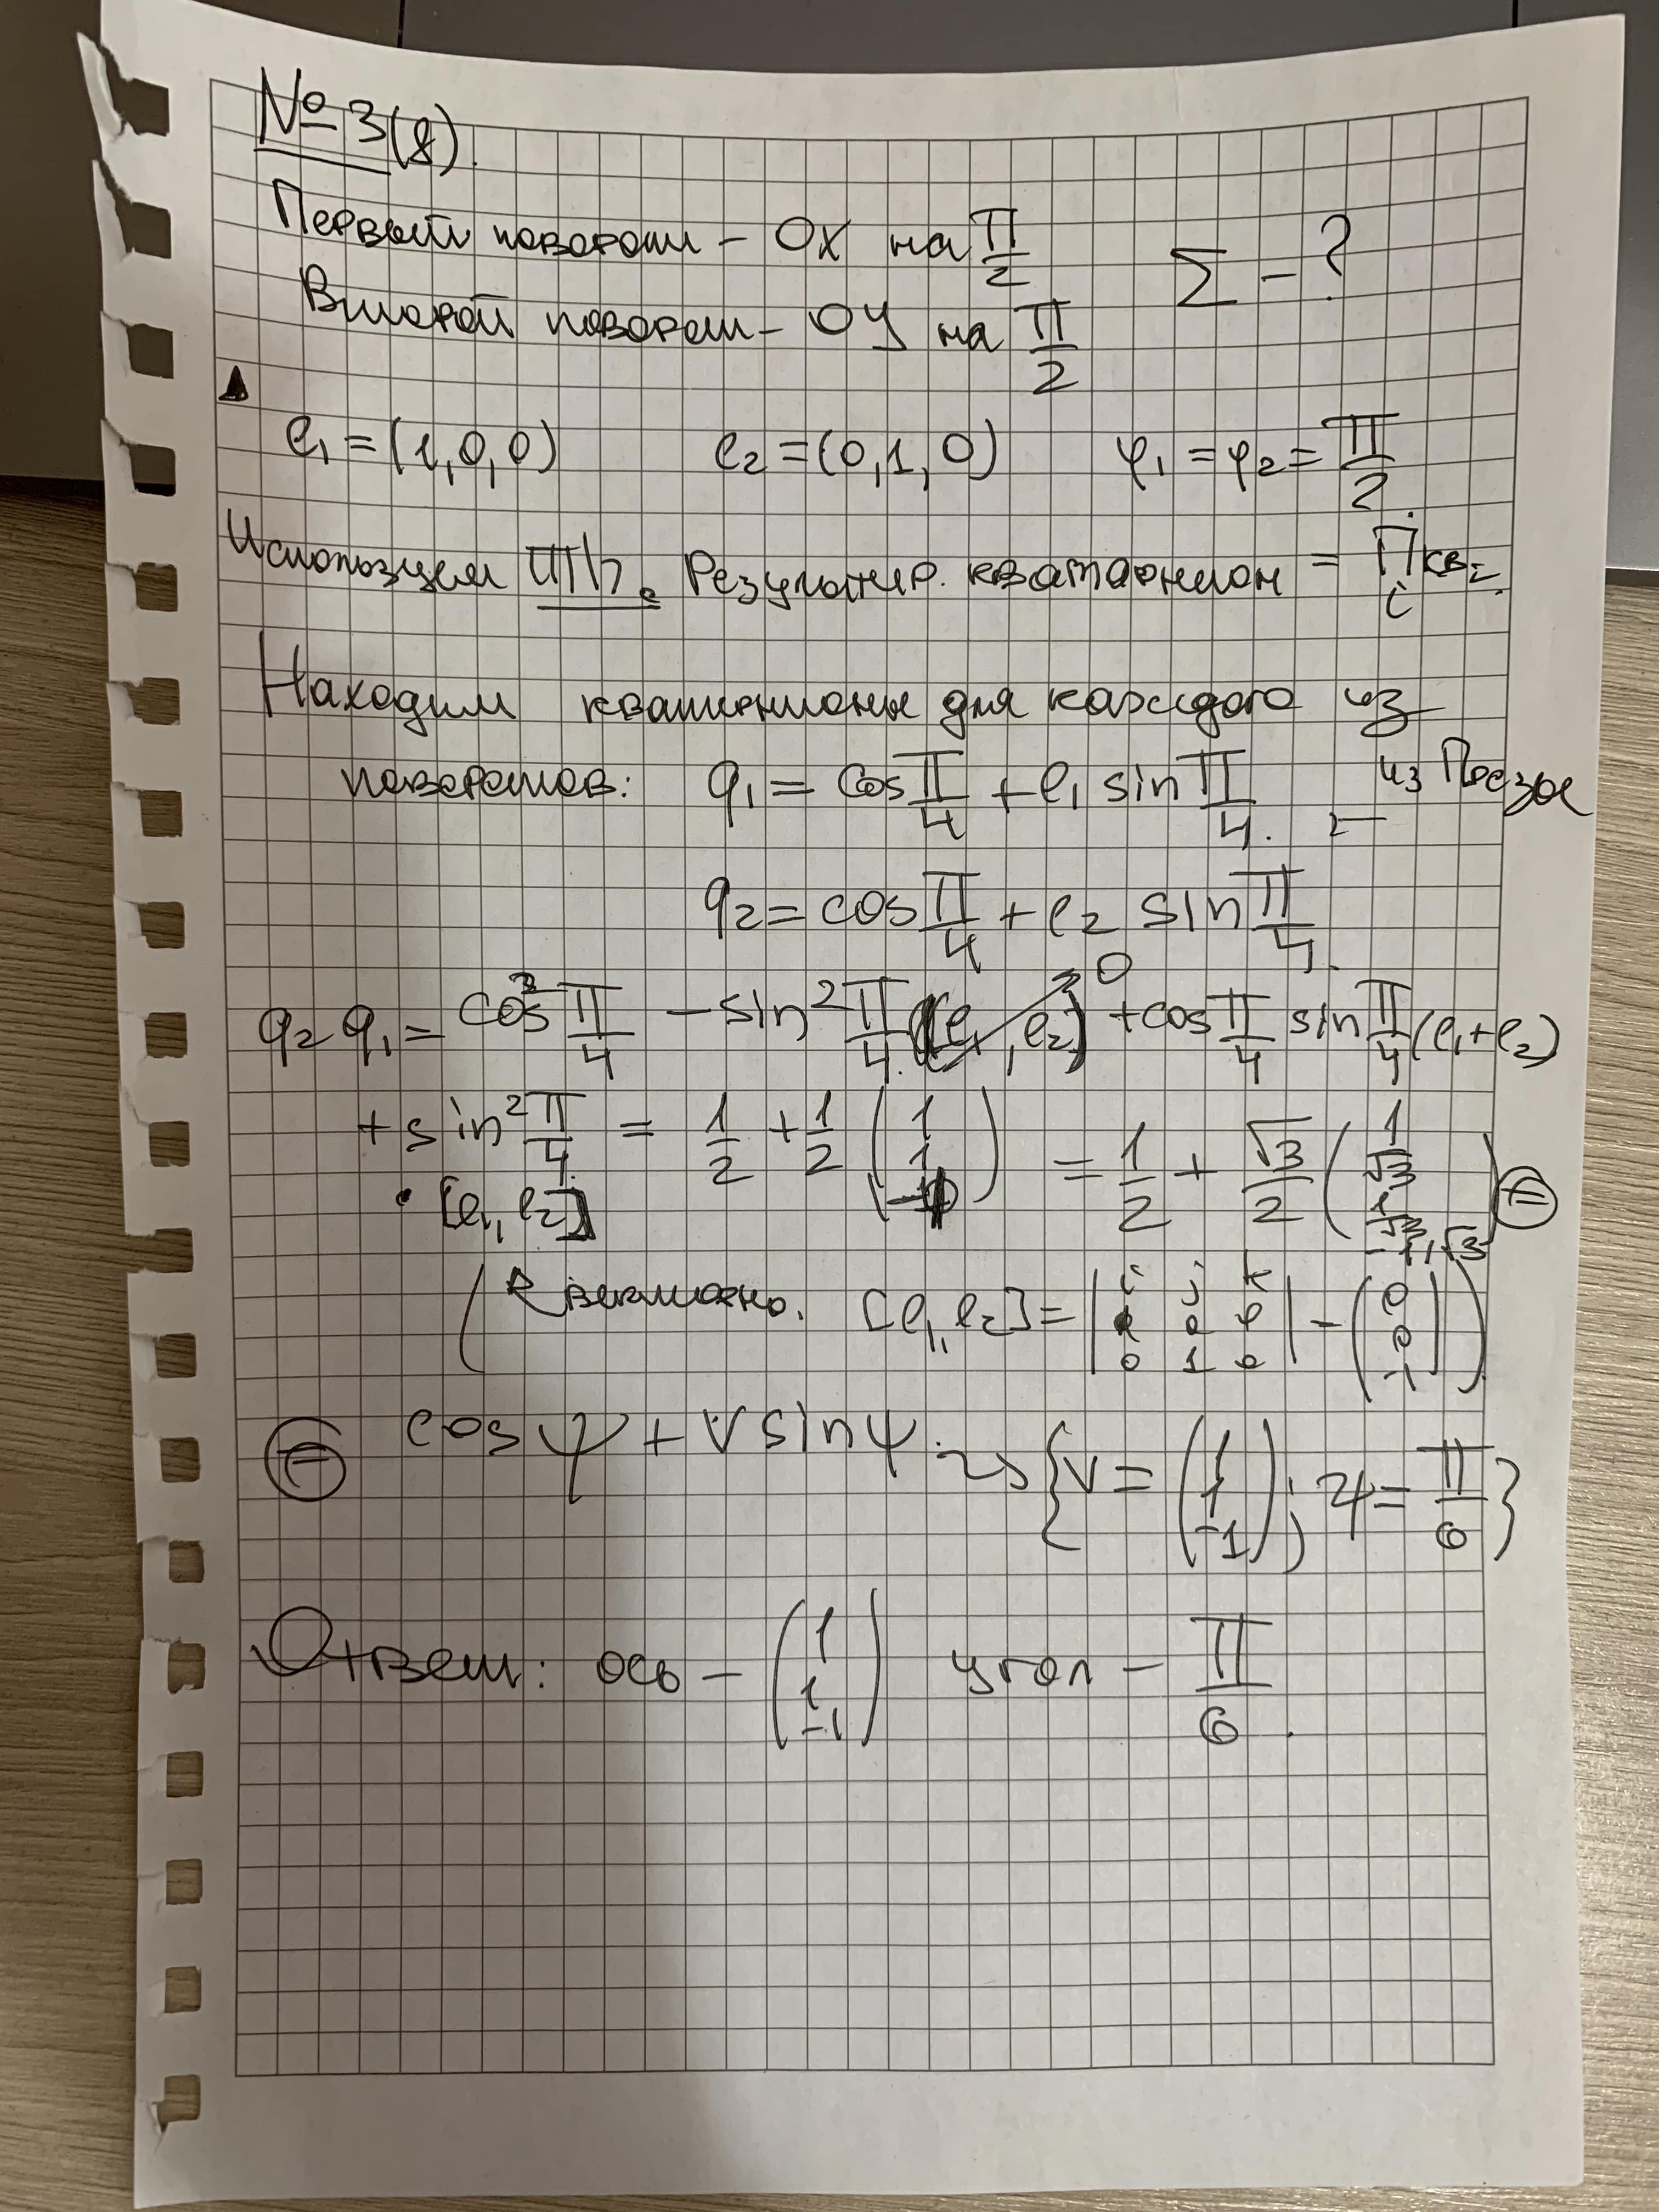 № 3(8).
Первый поворот – OX на π/2
Второй поворот – OY на π/2
Σ – ?
e₁ = (1,0,0) e₂ = (0,1,0) φ₁ = φ₂ = π/2.
Используем Резултир. кватернион = ∏ кв i
Находим кватернионы для каждого из
поворотов: q₁ = cos π/4 + e₁ sin π/4. из
q₂ = cos π/4 + e₂ sin π/4.
q₂ q₁ = cos² π/4 – sin² π/4 (e₁, e₂) → 0 + cos π/4 sin π/4 (e₁+e₂)
+ sin² π/4 · [e₁, e₂] = 1/2 + 1/2 (1 1 -1) = 1/2 + √3/2 (1/√3 1/√3 -1/√3) ⊜
( [e₁, e₂] = | i j k 0 0 0 1 0 | – (0 0 -1) )
⊜ cos ψ + v sin ψ. => { v = (1 1 -1) ; ψ = π/6 }
Ответ: ось – (1 1 -1) угол – π/6.